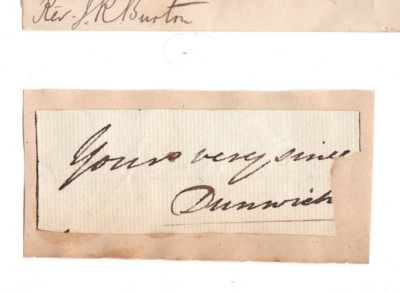 Rev. J. R. Burton
Yours very since
Dunwich